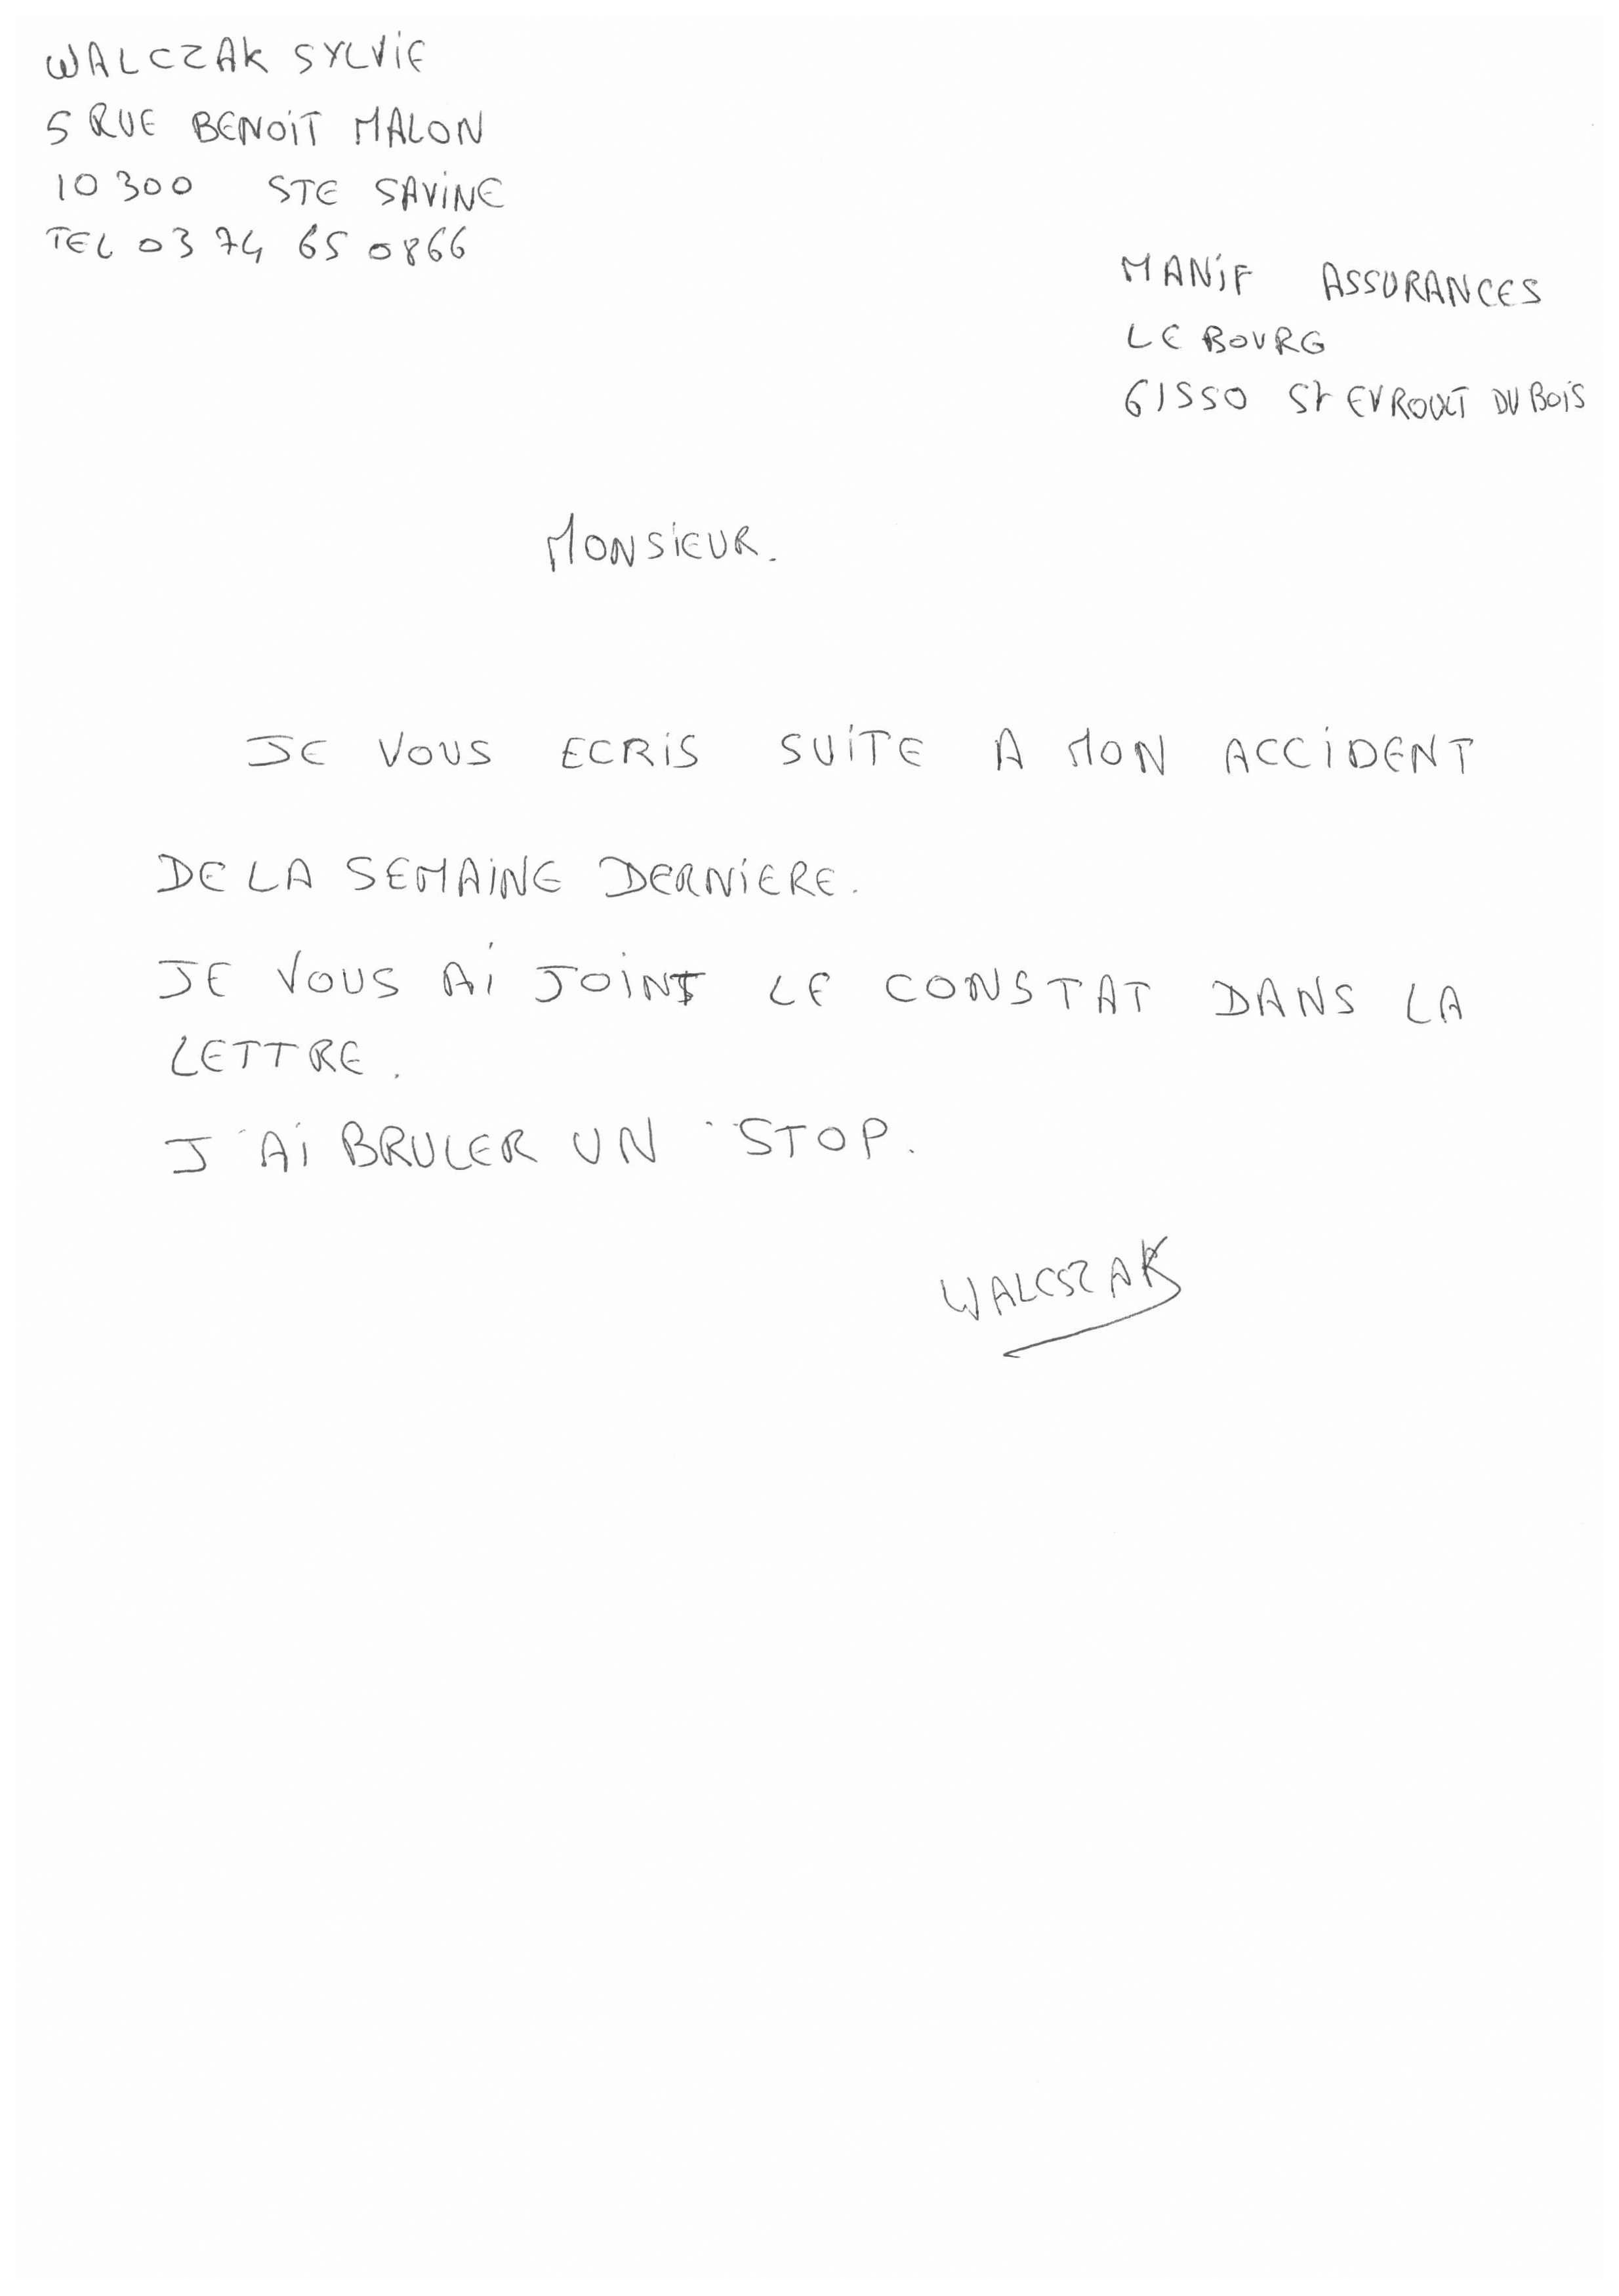 WALCZAK SYLVIE
5 RUE BENOIT MALON
10 300 STE SAVINE
TEL 03 74 65 0866
MANIF ASSURANCES
LE BOURG
61550 St EVROULT DU BOIS
MONSIEUR.
JE VOUS ECRIS SUITE A MON ACCIDENT
DE LA SEMAINE DERNIERE.
JE VOUS AI JOINT LE CONSTAT DANS LA
LETTRE.
J'AI BRULER UN STOP.
WALCSZAK